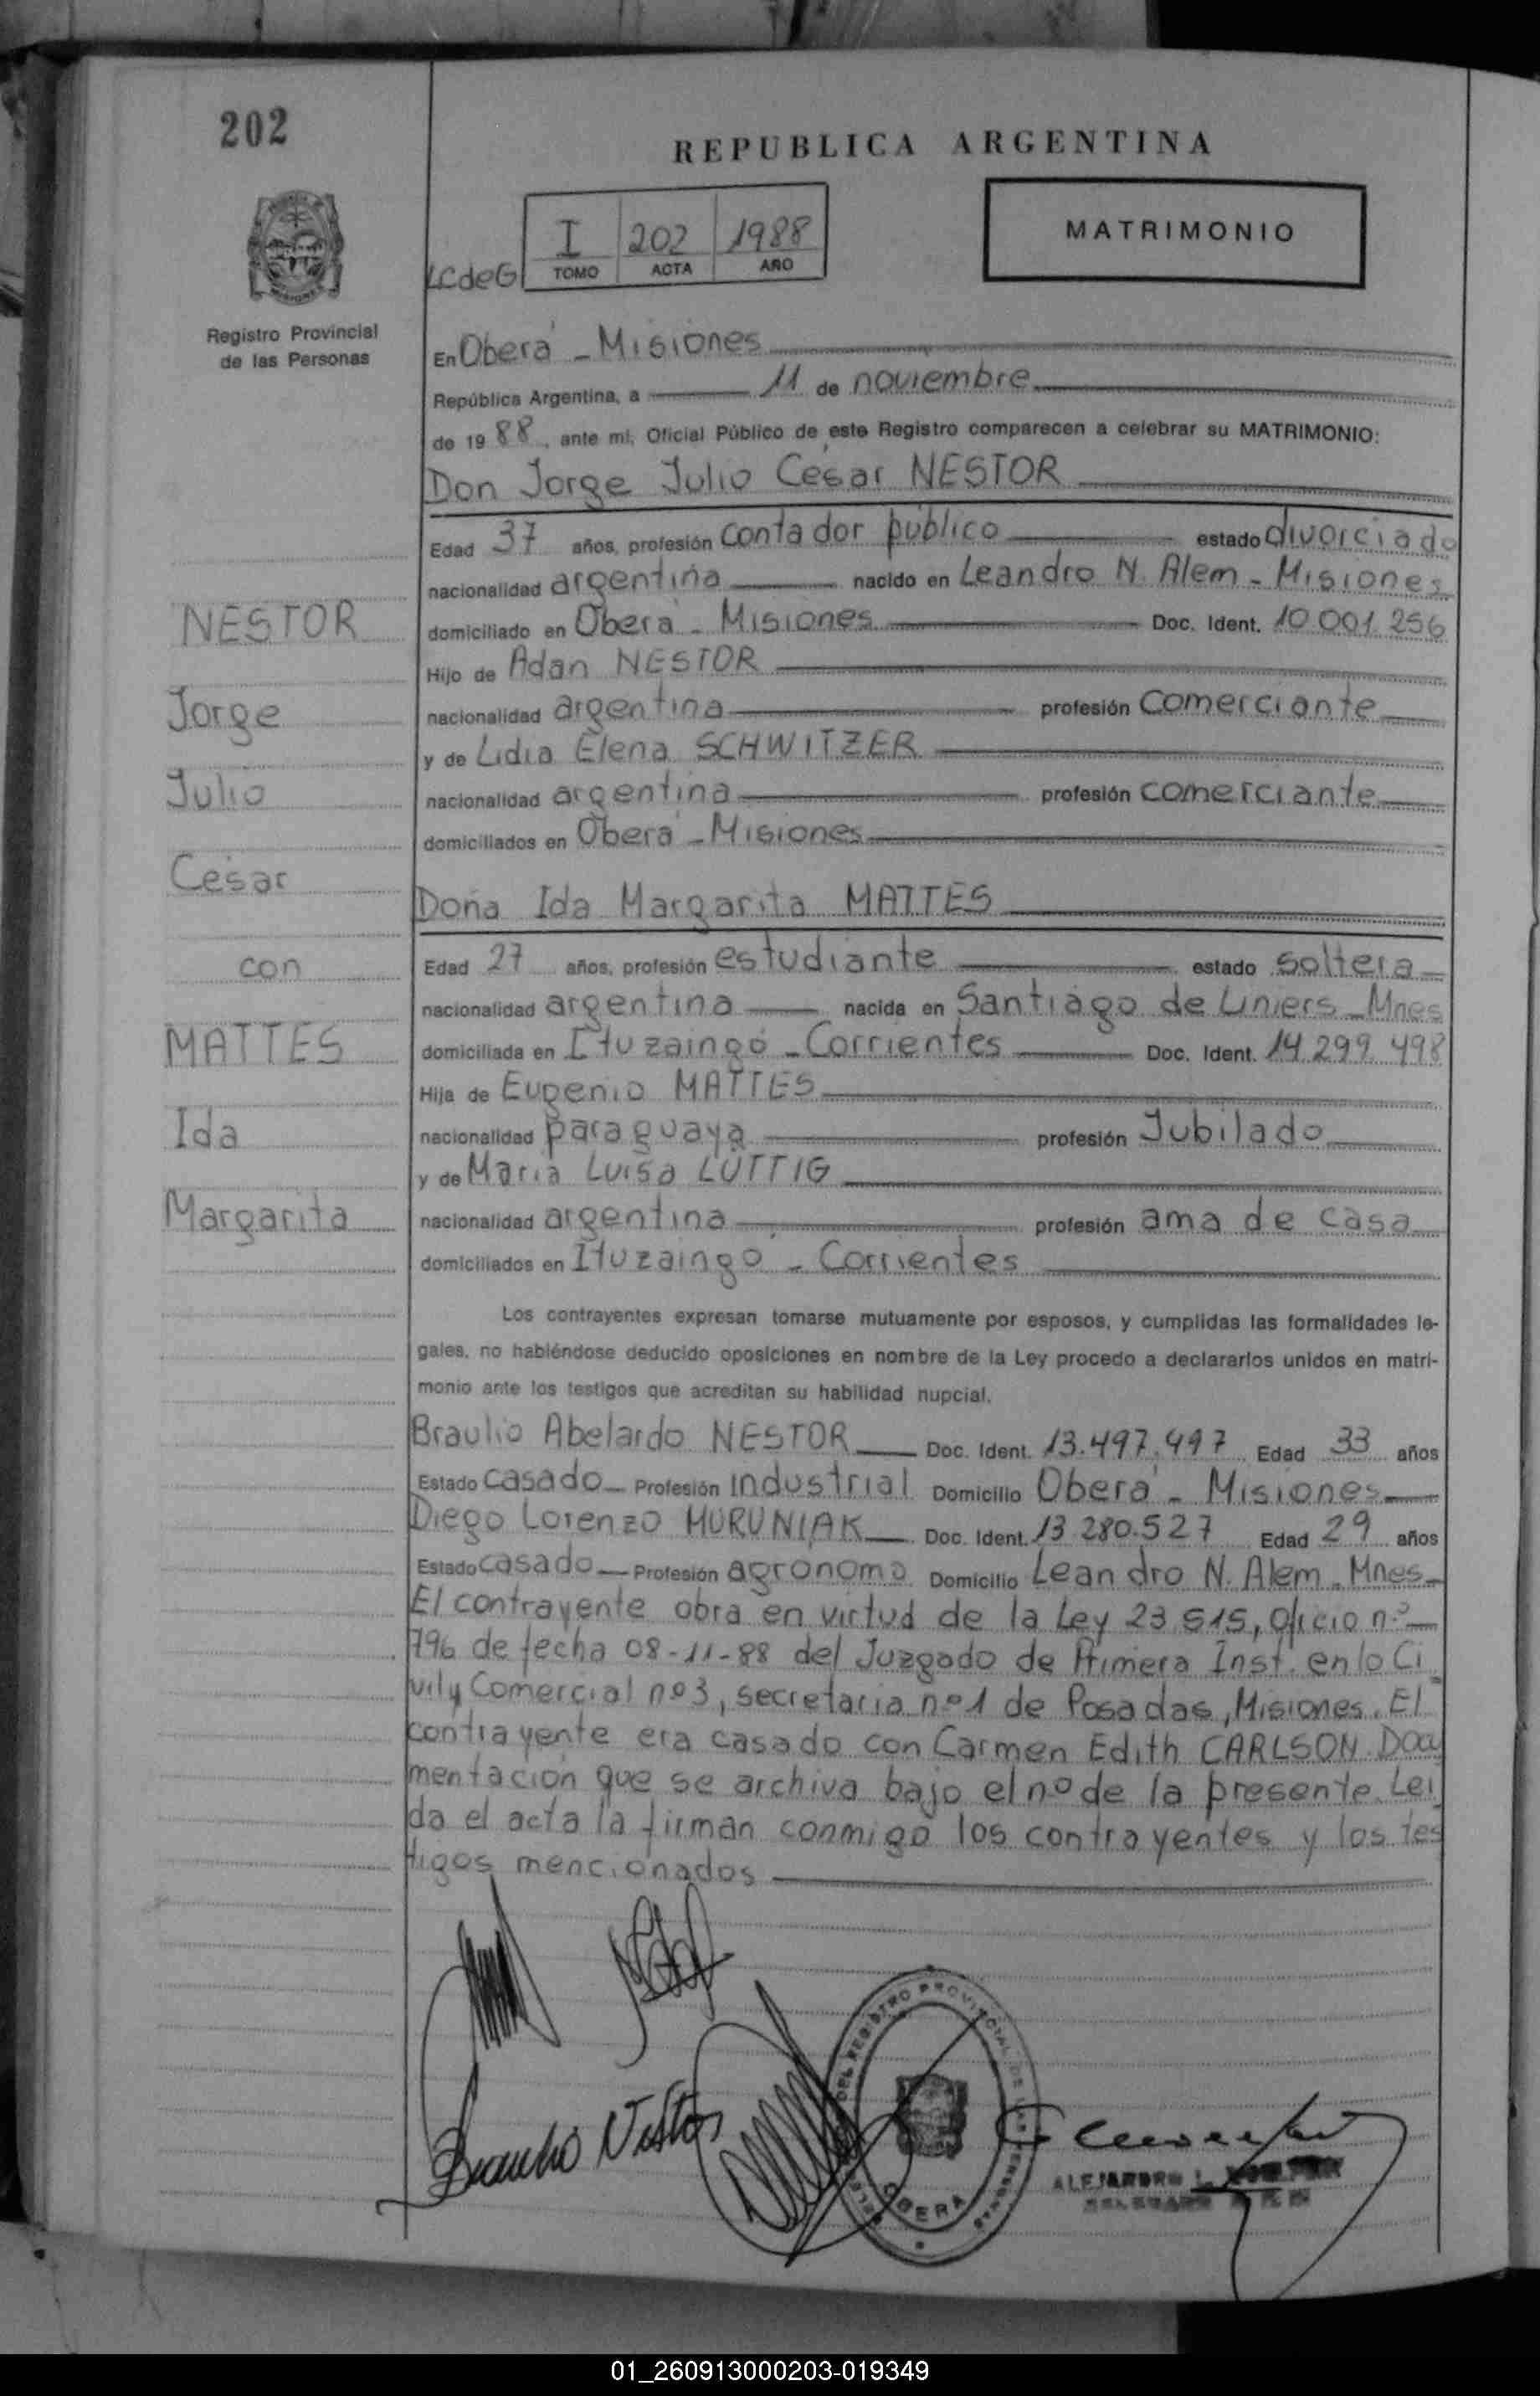 202
REPUBLICA ARGENTINA
I 202 1988
TOMO ACTA AÑO
LCdeG
MATRIMONIO
MISIONES
Registro Provincial
de las Personas
En Oberá - Misiones
República Argentina, a 11 de noviembre
de 1988, ante mí, Oficial Público de este Registro comparecen a celebrar su MATRIMONIO:
Don Jorge Julio César NESTOR
Edad 37 años, profesión contador público estado divorciado
nacionalidad argentina nacido en Leandro N. Alem - Misiones
NESTOR
domiciliado en Oberá - Misiones Doc. Ident. 10.001.256
Hijo de Adan NESTOR
Jorge
nacionalidad argentina profesión comerciante
y de Lidia Elena SCHWITZER
Julio
nacionalidad argentina profesión comerciante
domiciliados en Oberá - Misiones
César
Doña Ida Margarita MATTES
con
Edad 27 años, profesión estudiante estado soltera
nacionalidad argentina nacida en Santiago de Liniers - Mnes
MATTES
domiciliada en Ituzaingó - Corrientes Doc. Ident. 14.299.498
Hija de Eugenio MATTES
Ida
nacionalidad paraguaya profesión Jubilado
y de María Luisa LÜTTIG
Margarita
nacionalidad argentina profesión ama de casa
domiciliados en Ituzaingó - Corrientes
Los contrayentes expresan tomarse mutuamente por esposos, y cumplidas las formalidades le-
gales, no habiéndose deducido oposiciones en nombre de la Ley procedo a declararlos unidos en matri-
monio ante los testigos que acreditan su habilidad nupcial.
Braulio Abelardo NESTOR Doc. Ident. 13.497.497 Edad 33 años
Estado casado Profesión industrial Domicilio Oberá - Misiones
Diego Lorenzo MURUNIAK Doc. Ident. 13.280.527 Edad 29 años
Estado casado Profesión agronomo Domicilio Leandro N. Alem - Mnes
El contrayente obra en virtud de la Ley 23.515, Oficio nº
796 de fecha 08-11-88 del Juzgado de Primera Inst. en lo Ci
vil y Comercial nº 3, secretaria nº 1 de Posadas, Misiones. El
contrayente era casado con Carmen Edith CARLSON. Docu
mentación que se archiva bajo el nº de la presente. Lei
da el acta la firman conmigo los contrayentes y los tes
tigos mencionados
Braulio Nestor
DEL REGISTRO PROVINCIAL DE LAS PERSONAS
OBERA
ALEJANDRO
01_260913000203-019349